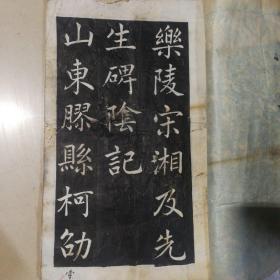 樂陵宋湘及先
生碑陰記
山東膠縣柯劭